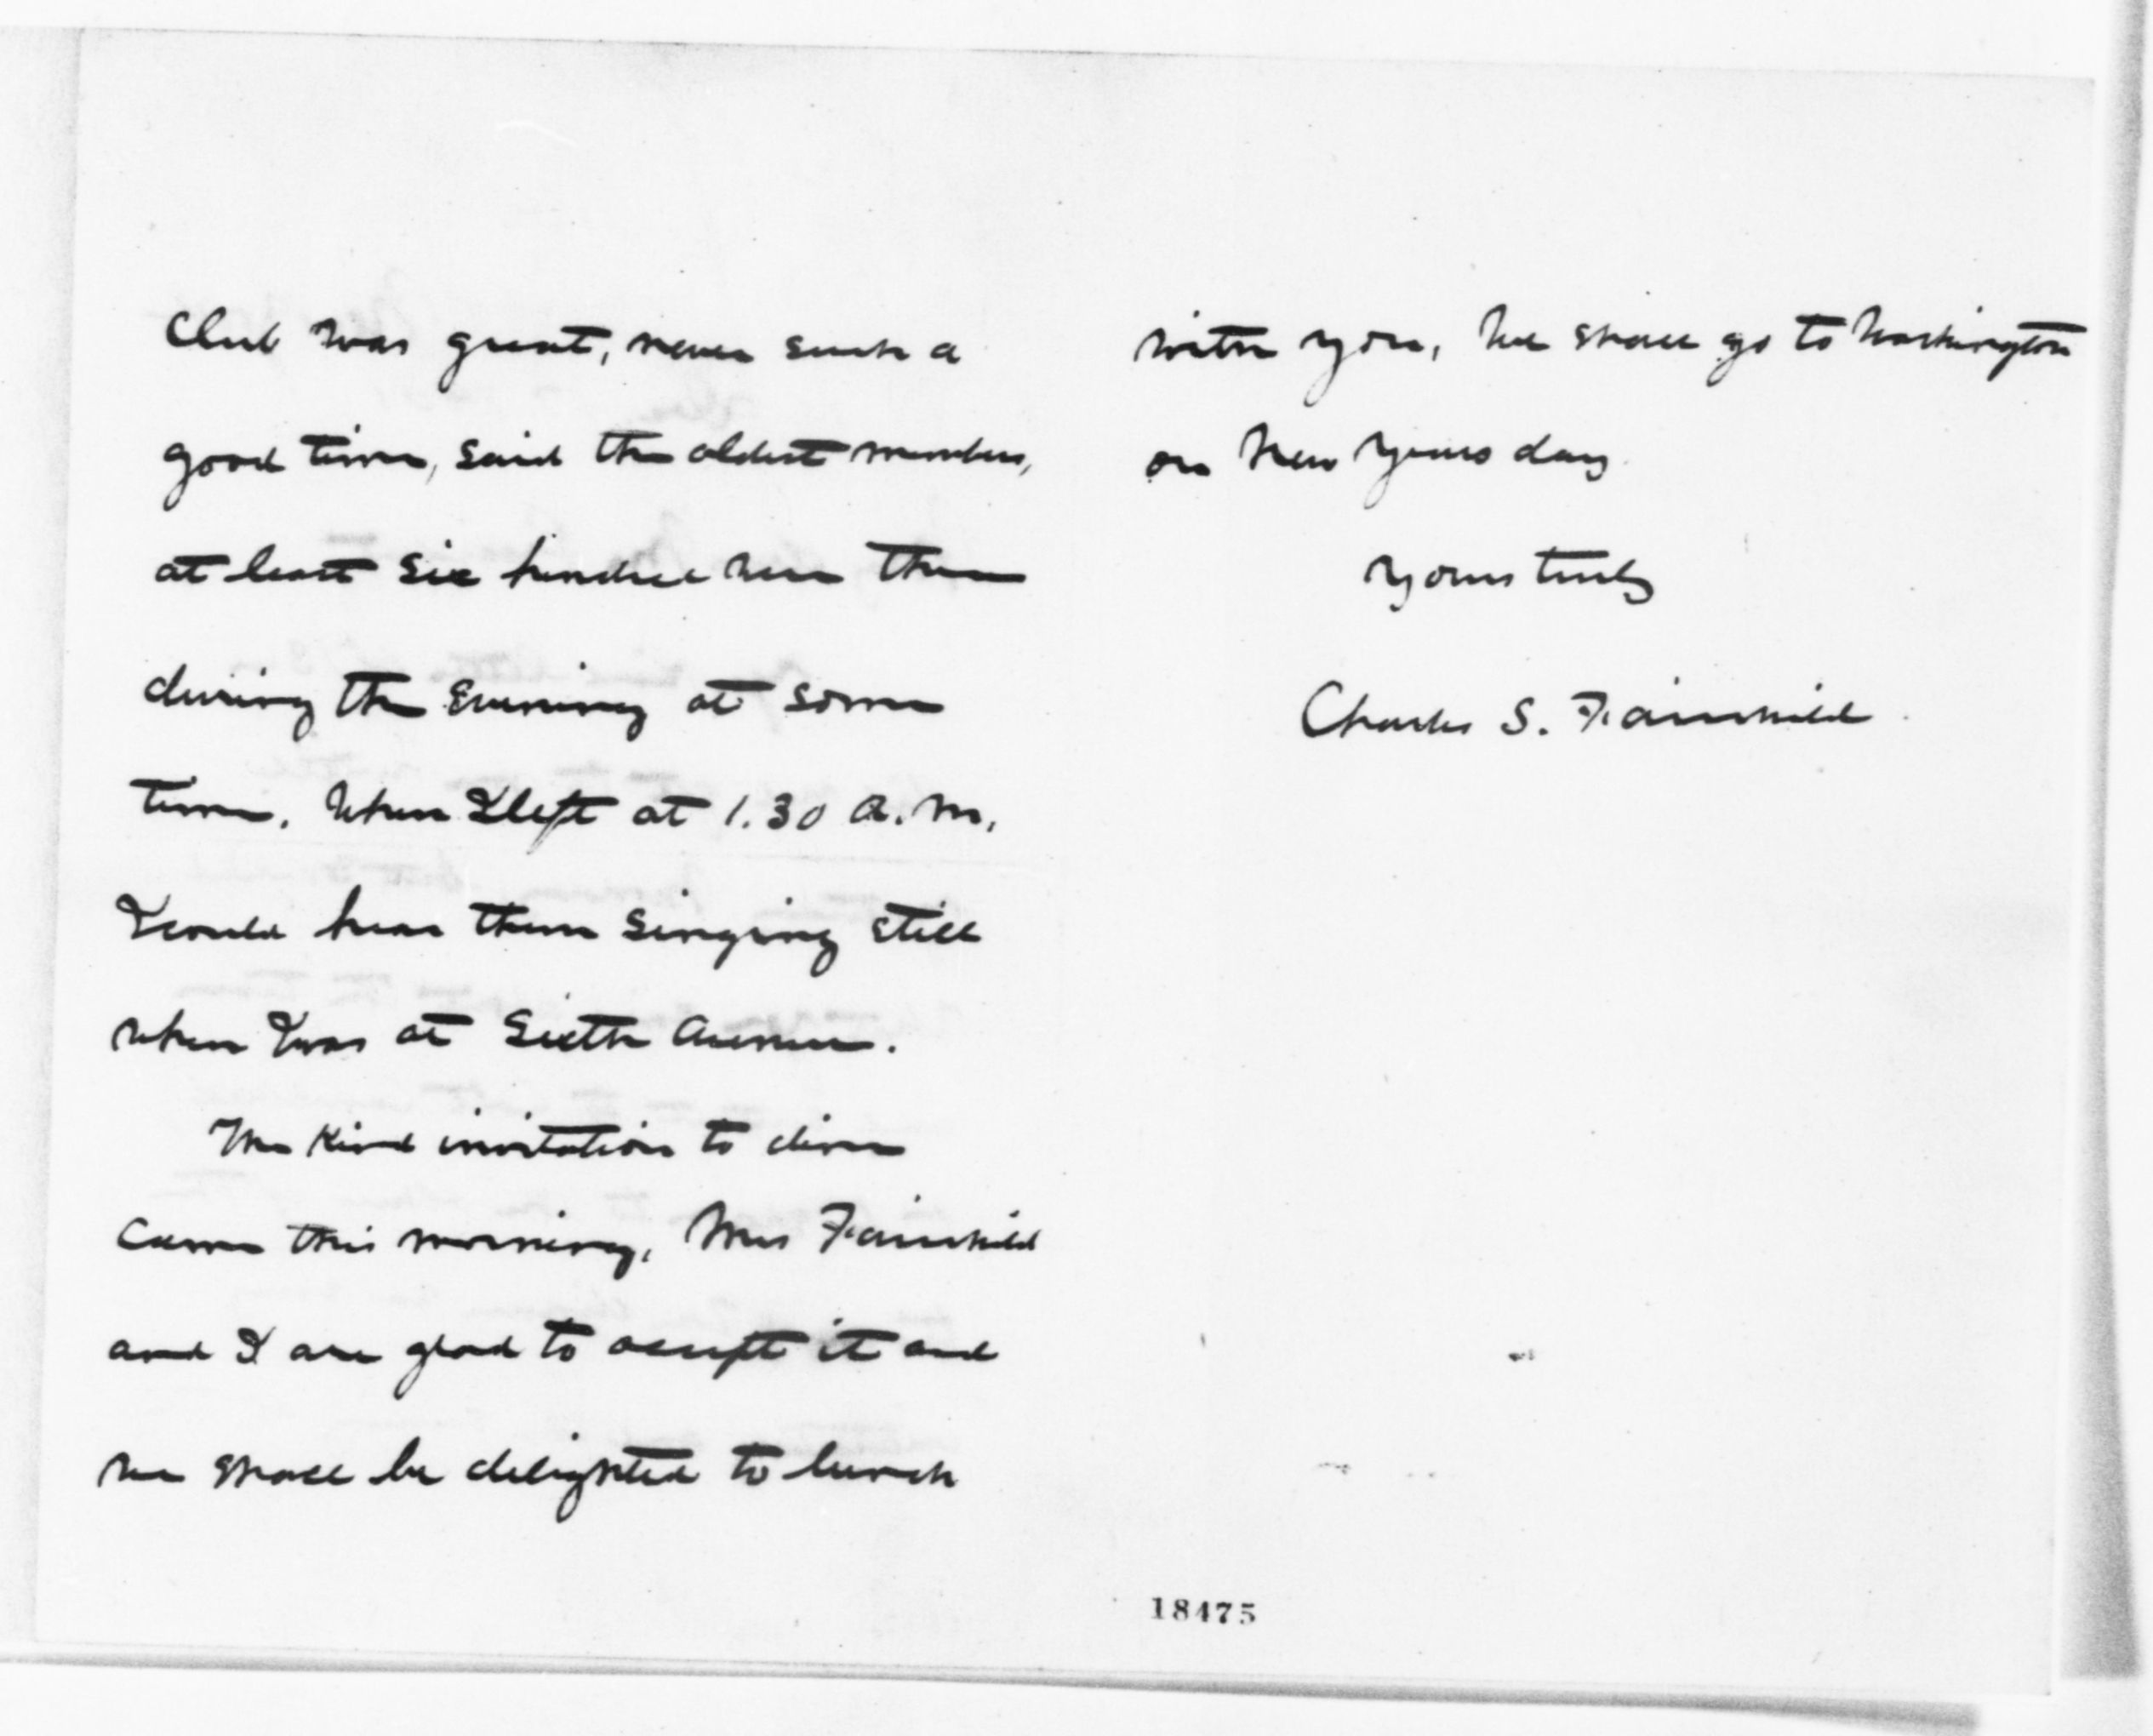 Club was great, never such a
good time, said the oldest members,
at least six hundred were there
during the evening at some
time. When I left at 1.30 A.M.
I could hear them singing still
when I was at Sixth Avenue.
The kind invitation to dine
came this morning, Mrs Fairchild
and I are glad to accept it and
we shall be delighted to lunch
with you, we shall go to Washington
on New Years day
Yours truly
Charles S. Fairchild.
18475